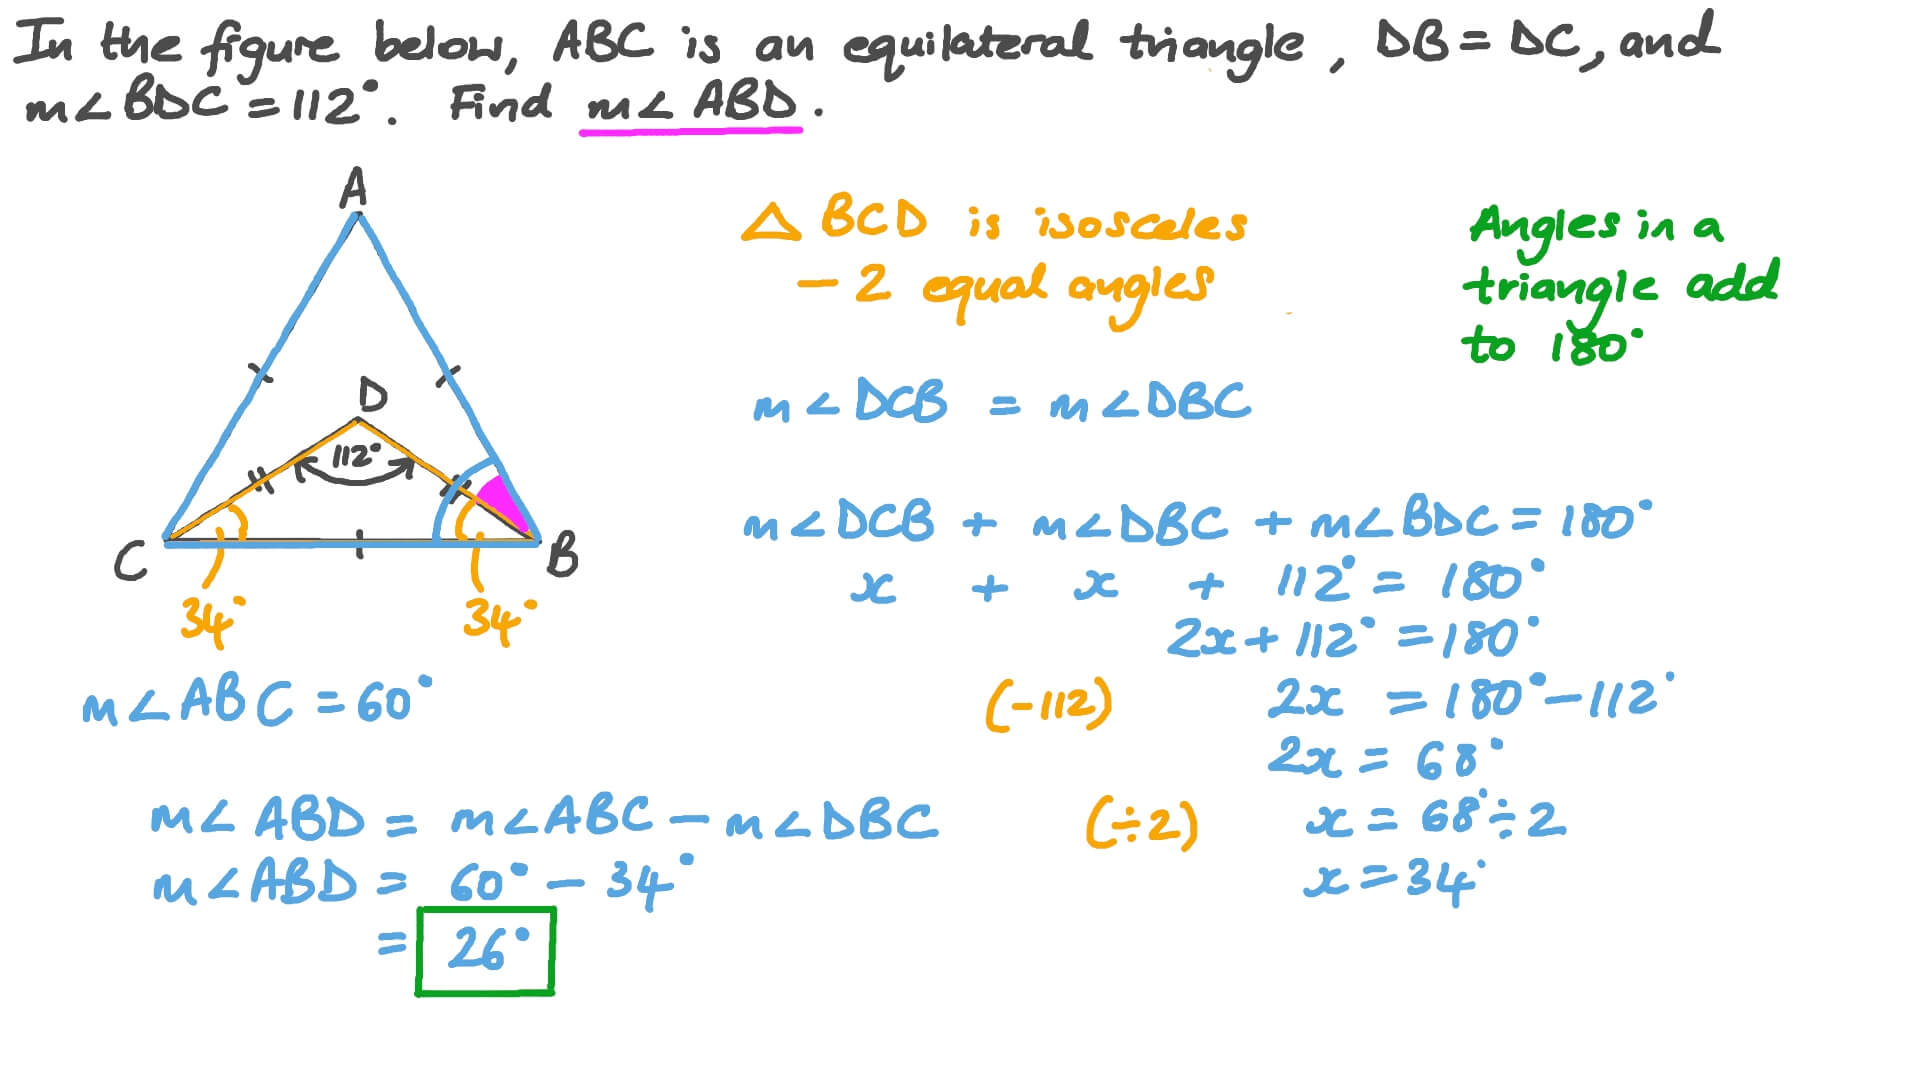 In the figure below, ABC is an equilateral triangle, DB = DC, and
m∠BDC = 112°. Find m∠ABD.
A
D
112°
C
B
34°
34°
m∠ABC = 60°
m∠ABD = m∠ABC − m∠DBC
m∠ABD = 60° − 34°
= 26°
△ BCD is isosceles
− 2 equal angles
m∠DCB = m∠DBC
m∠DCB + m∠DBC + m∠BDC = 180°
x + x + 112° = 180°
2x + 112° = 180°
(−112) 2x = 180° − 112°
2x = 68°
(÷2) x = 68° ÷ 2
x = 34°
Angles in a
triangle add
to 180°